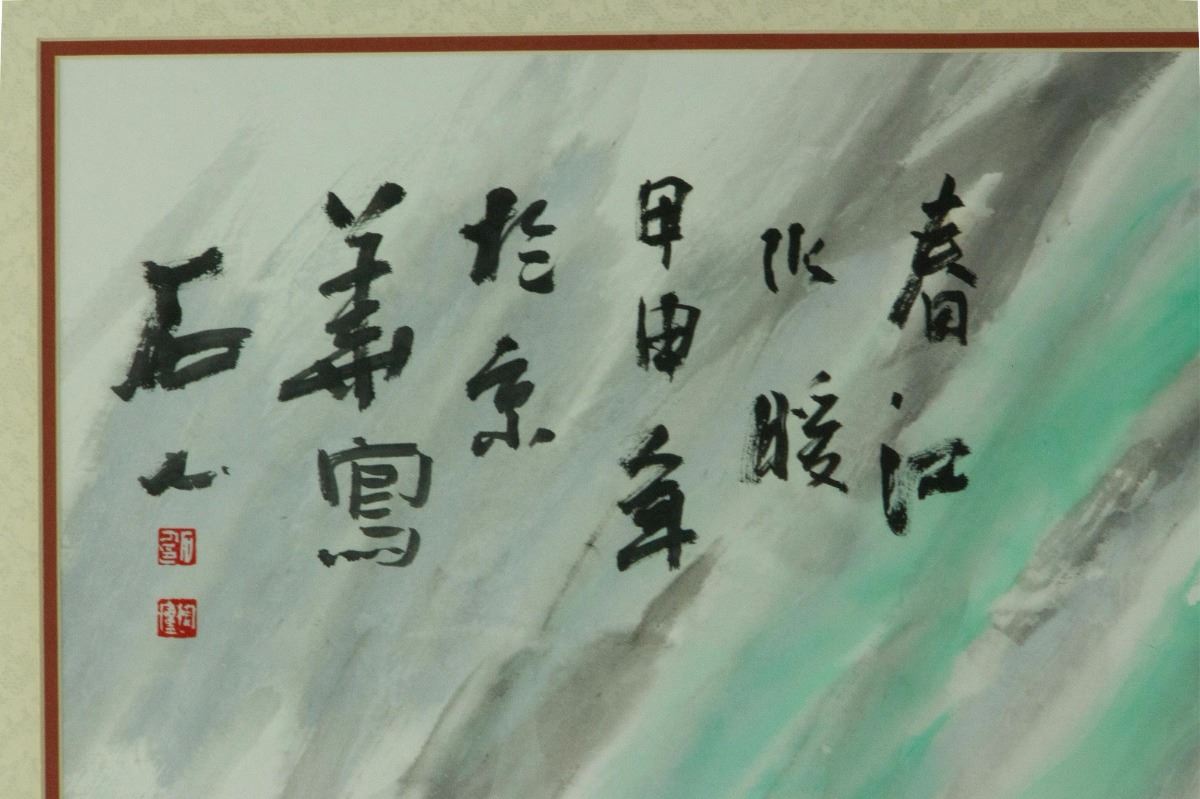 春江
水暖
甲申年
於京
華寫
石